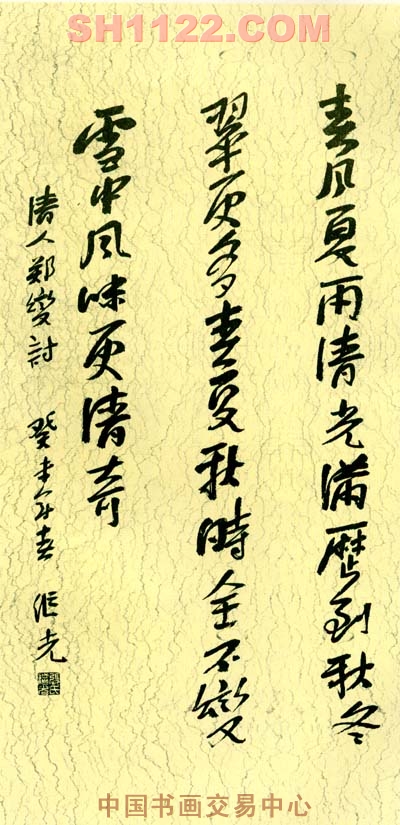 SH1122.COM
春风夏雨清光满历到秋冬
翠更多春夏秋時全不變
雪中风味更清奇
清人郑燮討 癸未年春 继光
中国书画交易中心